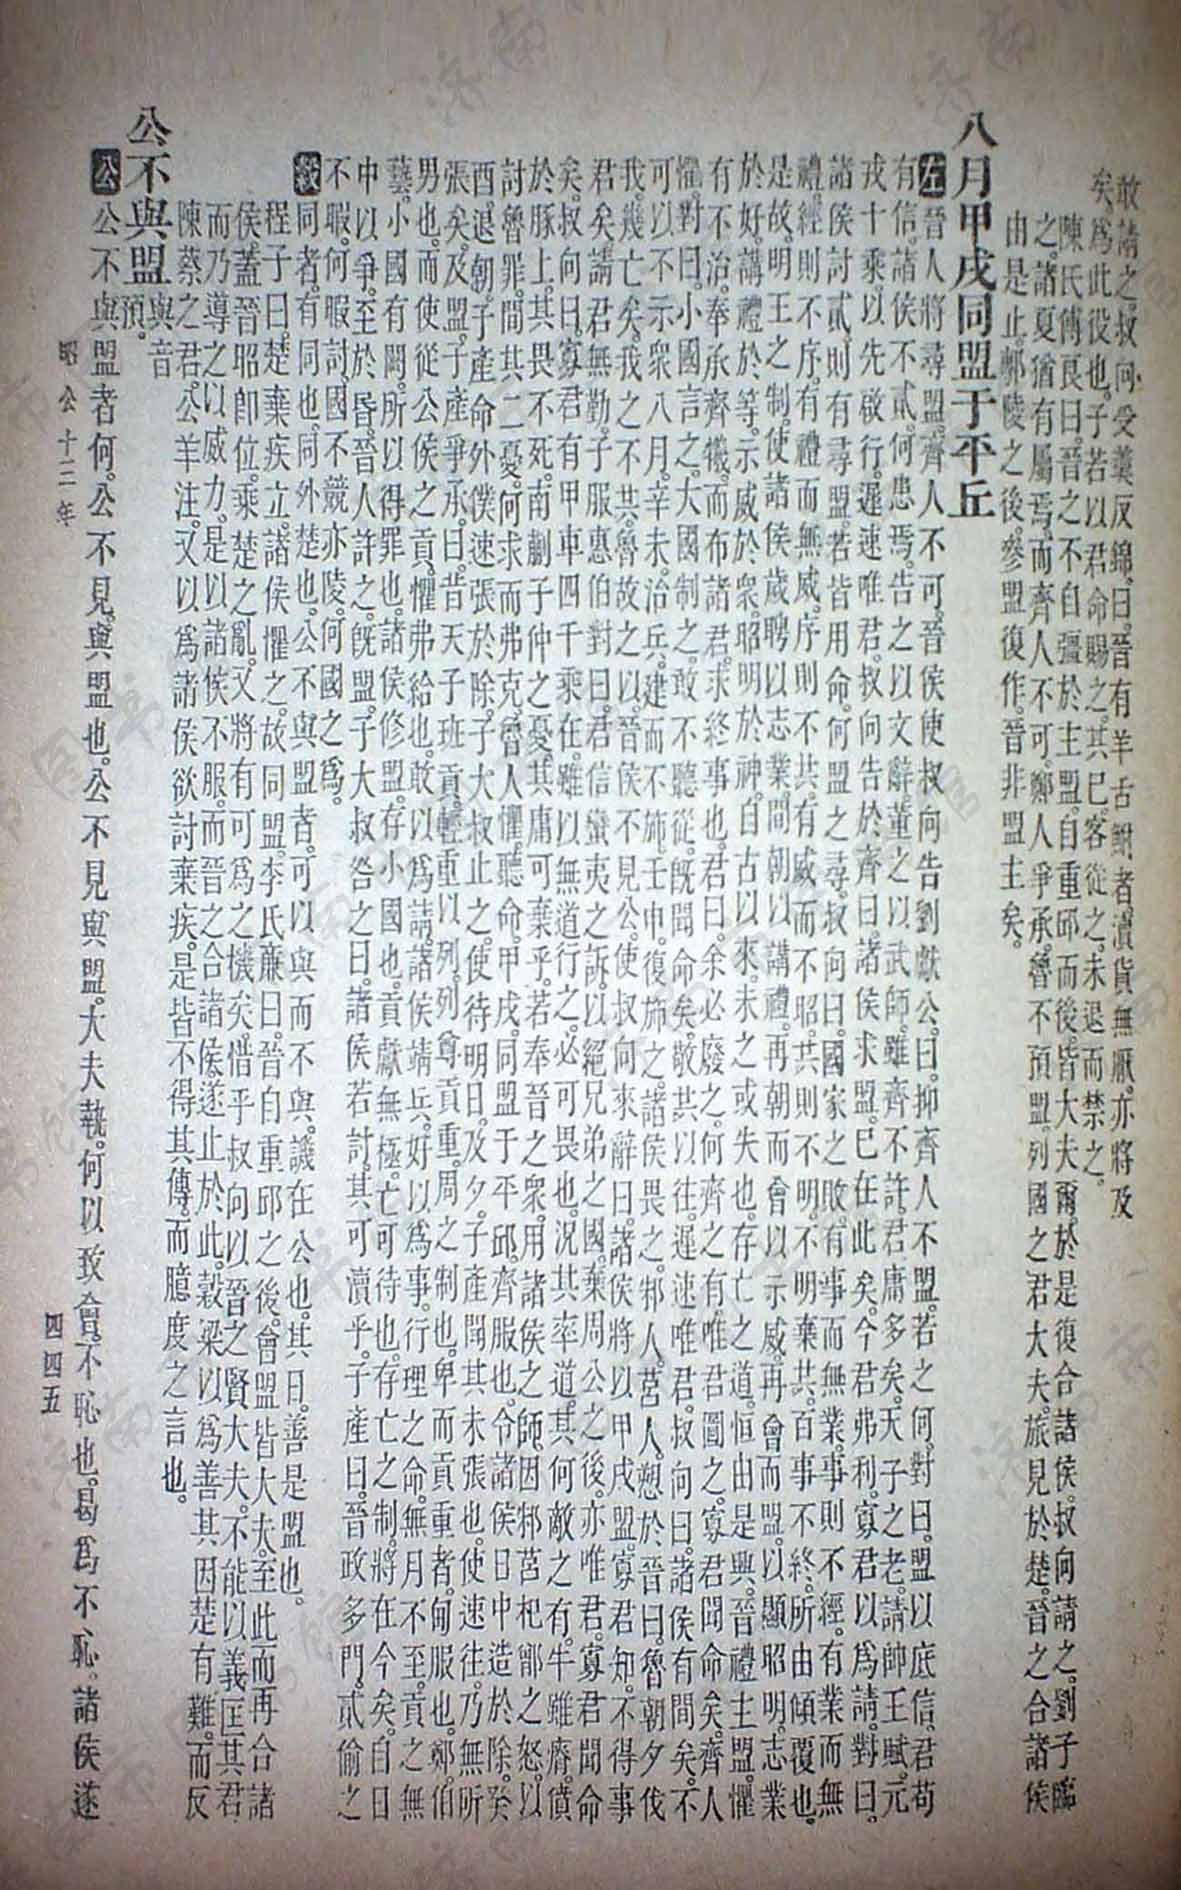 敢請之。叔向受羹反錦。曰。晉有羊舌鮒者。瀆貨無厭。亦將及
矣。爲此役也。子若以君命賜之。其已。客從之。未退而禁之。
陳氏傅良曰。晉之不自彊於主盟。自重邱而後。皆大夫爾。於是復合諸侯。叔向請之。劉子臨
之。諸夏猶有屬焉。而齊人不可。鄭人爭承。魯不預盟。列國之君大夫。旅見於楚。晉之合諸侯
由是止。鄟陵之後。參盟復作。晉非盟主矣。
八月甲戌同盟于平丘
左 晉人將尋盟。齊人不可。晉侯使叔向告劉獻公。曰。抑齊人不盟。若之何。對曰。盟以厎信。君苟
有信。諸侯不貳。何患焉。告之以文辭。董之以武師。雖齊不許。君庸多矣。天子之老。請帥王賦。元
戎十乘。以先啟行。遲速唯君。叔向告於齊。曰。諸侯求盟。已在此矣。今君弗利。寡君以爲請。對曰。
諸侯討貳。則有尋盟。若皆用命。何盟之尋。叔向曰。國家之敗。有事而無業。事則不經。有業而無
禮。經則不序。有禮而無威。序則不共。有威而不昭。共則不明。不明棄共。百事不終。所由傾覆也。
是故明王之制。使諸侯歲聘以志業。間朝以講禮。再朝而會以示威。再會而盟。以顯昭明。志業
於好。講禮於等。示威於衆。昭明於神。自古以來。未之或失也。存亡之道。恒由是興。晉禮主盟。懼
有不治。奉承齊犧。而布諸君。求終事也。君曰。余必廢之。何齊之有。唯君圖之。寡君聞命矣。齊人
懼。對曰。小國言之。大國制之。敢不聽從。旣聞命矣。敬共以往。遲速唯君。叔向曰。諸侯有間矣。不
可以不示衆。八月。辛未治兵。建而不旆。壬申。復旆之。諸侯畏之。邾人。莒人。愬於晉曰。魯朝夕伐
我。幾亡矣。我之不共。魯故之以。晉侯不見公。使叔向來辭曰。諸侯將以甲戌盟。寡君知不得事
君矣。請君無勤。子服惠伯對曰。君信蠻夷之訴。以絕兄弟之國。棄周公之後。亦唯君。寡君聞命
矣。叔向曰。寡君有甲車四千乘在。雖以無道行之。必可畏也。況其率道。其何敵之有。牛雖瘠。僨
於豚上。其畏不死。南蒯子仲之憂。其庸可棄乎。若奉晉之衆。用諸侯之師。因邾莒杞鄫之怒。以
討魯罪。間其二憂。何求而弗克。魯人懼。聽命。甲戌。同盟于平邱。齊服也。令諸侯日中造於除。癸
酉。退朝。子產命外僕。速張於除。子大叔止之。使待明日。及夕。子產聞其未張也。使速往。乃無所
張矣。及盟。子產爭承。曰。昔天子班貢。輕重以列。列尊貢重。周之制也。卑而貢重者。甸服也。鄭伯
男也。而使從公侯之貢。懼弗給也。敢以爲請。諸侯靖兵。好以爲事。行理之命。無月不至。貢之無
藝。小國有闕。所以得罪也。諸侯修盟。存小國也。貢獻無極。亡可待也。存亡之制。將在今矣。自日
中以爭。至於昏。晉人許之。旣盟。子大叔咎之曰。諸侯若討。其可瀆乎。子產曰。晉政多門。貳偷之
不暇。何暇討。國不競亦陵。何國之爲。
穀 同者。有同也。同外楚也。公不與盟者。可以與而不與。譏在公也。其日。善是盟也。
程子曰。楚棄疾立。諸侯懼之。故同盟。李氏廉曰。晉自重邱之後。會盟皆大夫。至此而再合諸
侯。蓋晉昭卽位。乘楚之亂。又將有可爲之機矣。惜乎叔向以晉之賢大夫。不能以義匡其君
而乃導之以威力。是以諸侯不服。而晉之合諸侯。遂止於此。穀梁以爲善其因楚有難。而反
陳蔡之君。公羊注。又以爲諸侯欲討棄疾。是皆不得其傳。而臆度之言也。
公不與盟 與音預。
公 公不與盟者何。公不見與盟也。公不見與盟。大夫執。何以致會。不恥也。曷爲不恥。諸侯遂
昭公十三年
四四五